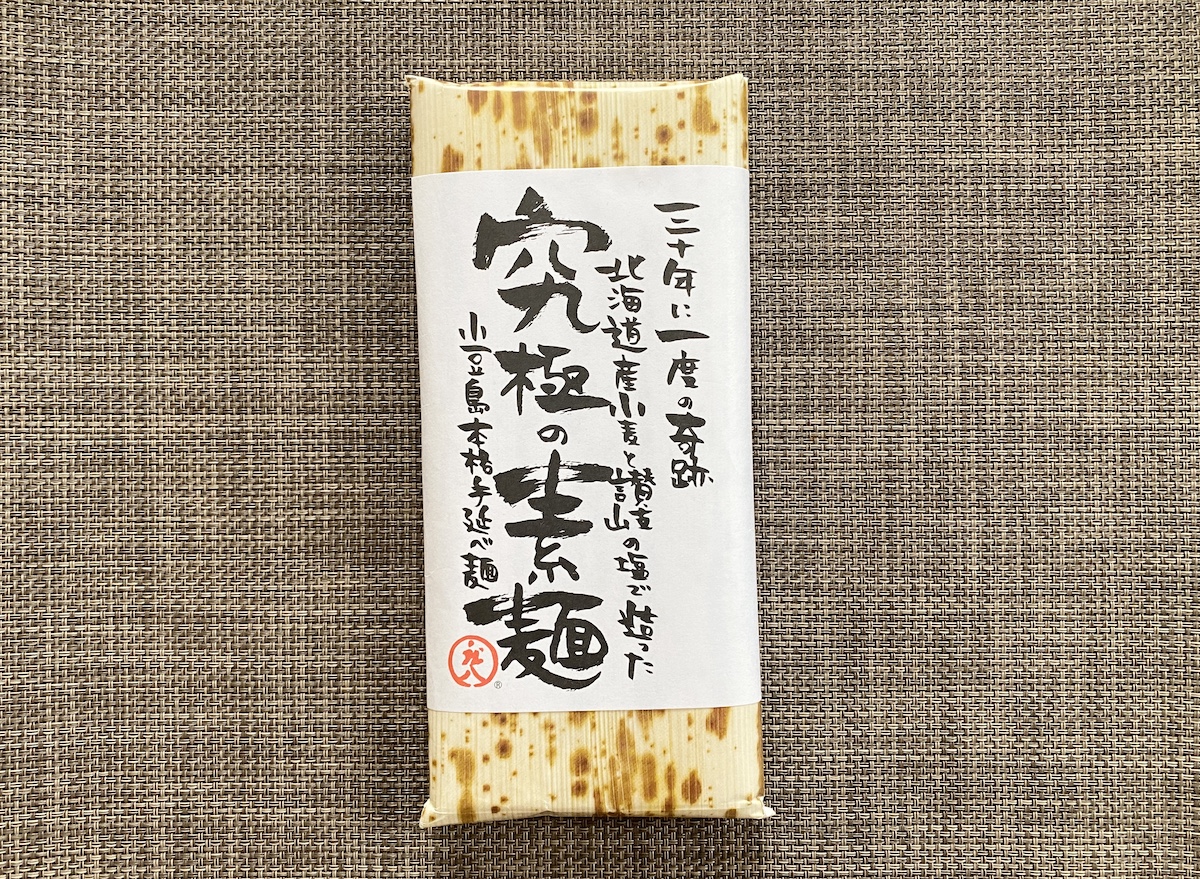 三十年に一度の奇跡
北海道産小麦と讃岐の塩で造った
究極の素麺
小豆島本格手延べ麺
®